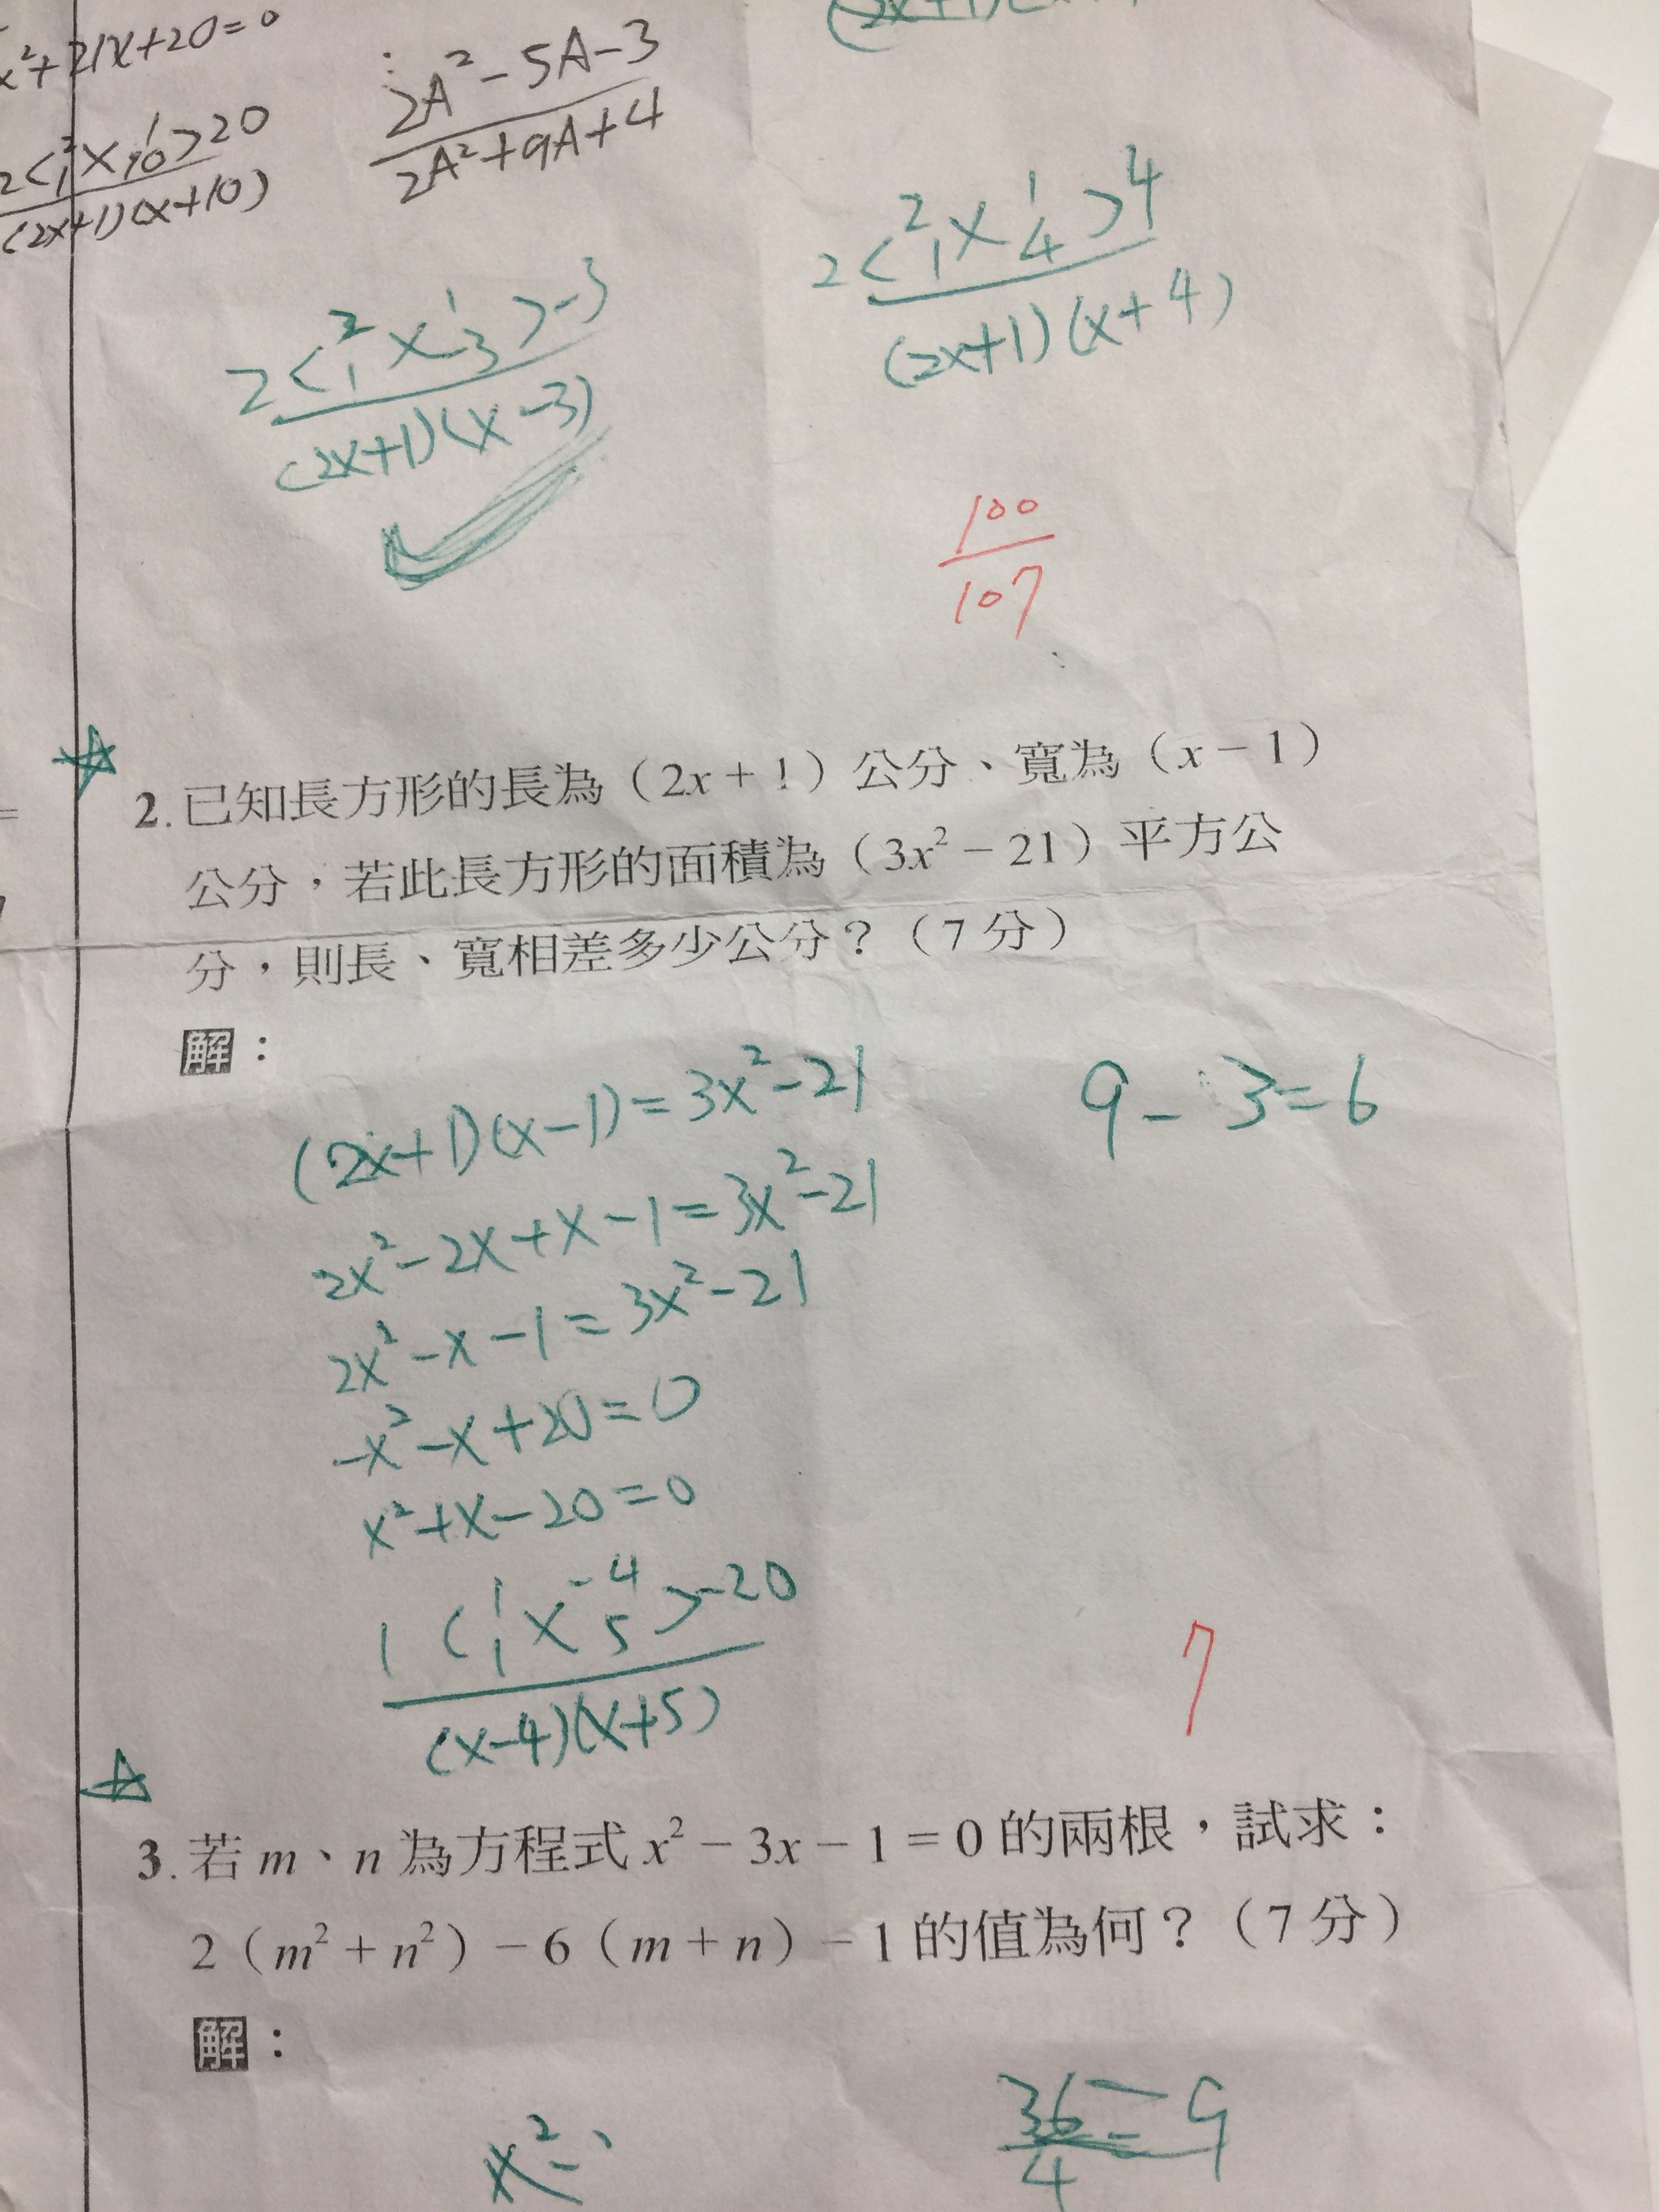 x²+21x+20=0
2A²-5A-3
2A²+9A+4
2<²₁X¹₁₀>20
(2x+1)(x+10)
2<²₁X¹₄>4
(2x+1)(x+4)
2<²₁X¹₋₃>-3
(2x+1)(x-3)
100
107
2.已知長方形的長為(2x+1)公分、寬為(x-1)
公分,若此長方形的面積為(3x²-21)平方公
分,則長、寬相差多少公分?(7分)
解:
(2x+1)(x-1)=3x²-21
9-3=6
2x²-2x+x-1=3x²-21
2x²-x-1=3x²-21
-x²-x+20=0
x²+x-20=0
1<¹₁X⁻⁴₅>-20
(x-4)(x+5)
7
3.若m、n為方程式x²-3x-1=0的兩根,試求:
2(m²+n²)-6(m+n)-1的值為何?(7分)
解:
36/4=9
x²-